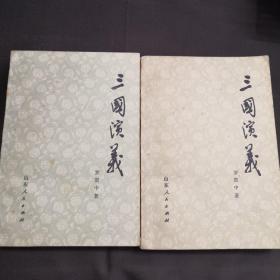 三國演義
罗贯中著
山东人民出版社
三國演義
罗贯中著
山东人民出版社